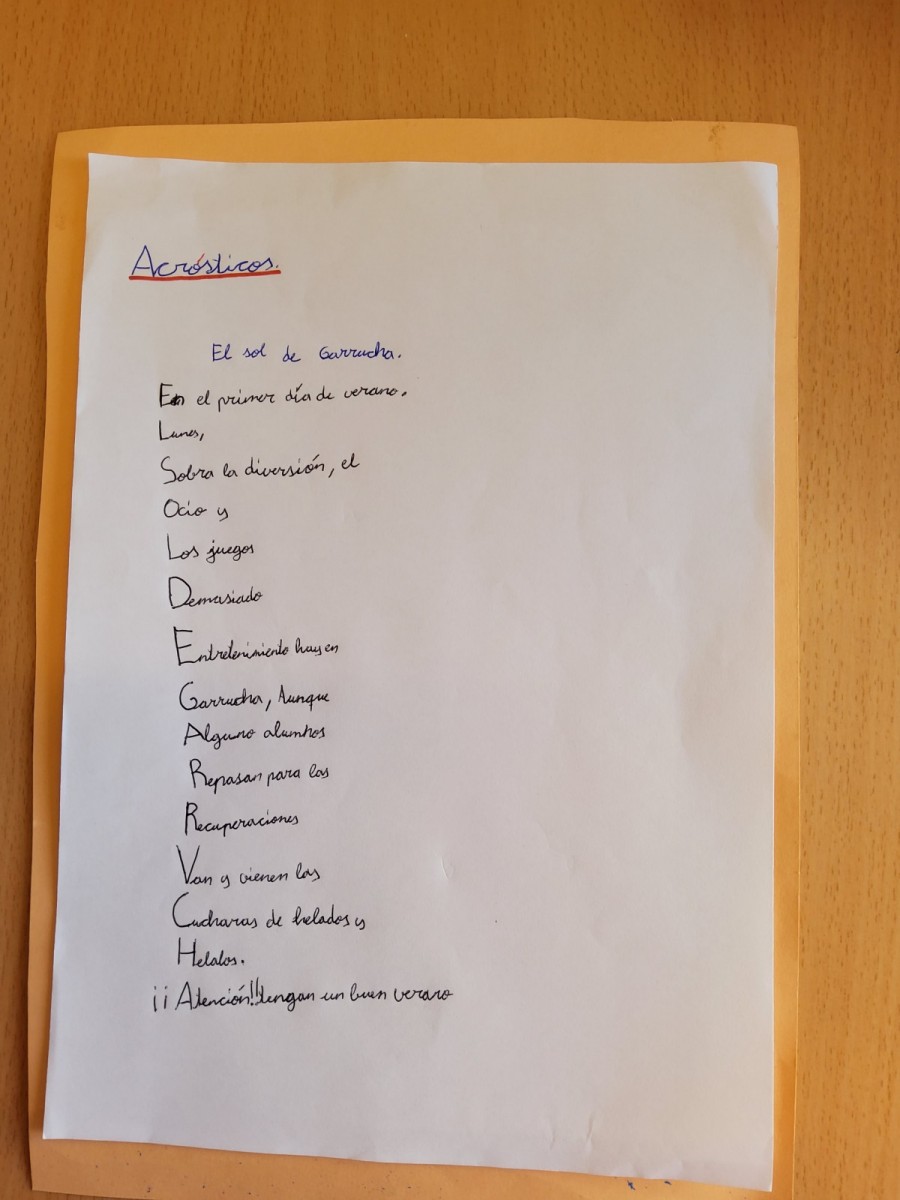 Acrósticos.
El sol de Garrucha.
En el primer día de verano.
Lunes,
Sobra la diversión, el
Ocio y
Los juegos
Demasiado
Entretenimiento hay en
Garrucha, Aunque
Alguno alumnos
Repasan para las
Recuperaciones
Van y vienen las
Cucharas de helados y
Helalos.
¡¡Atención!!tengan un buen verano